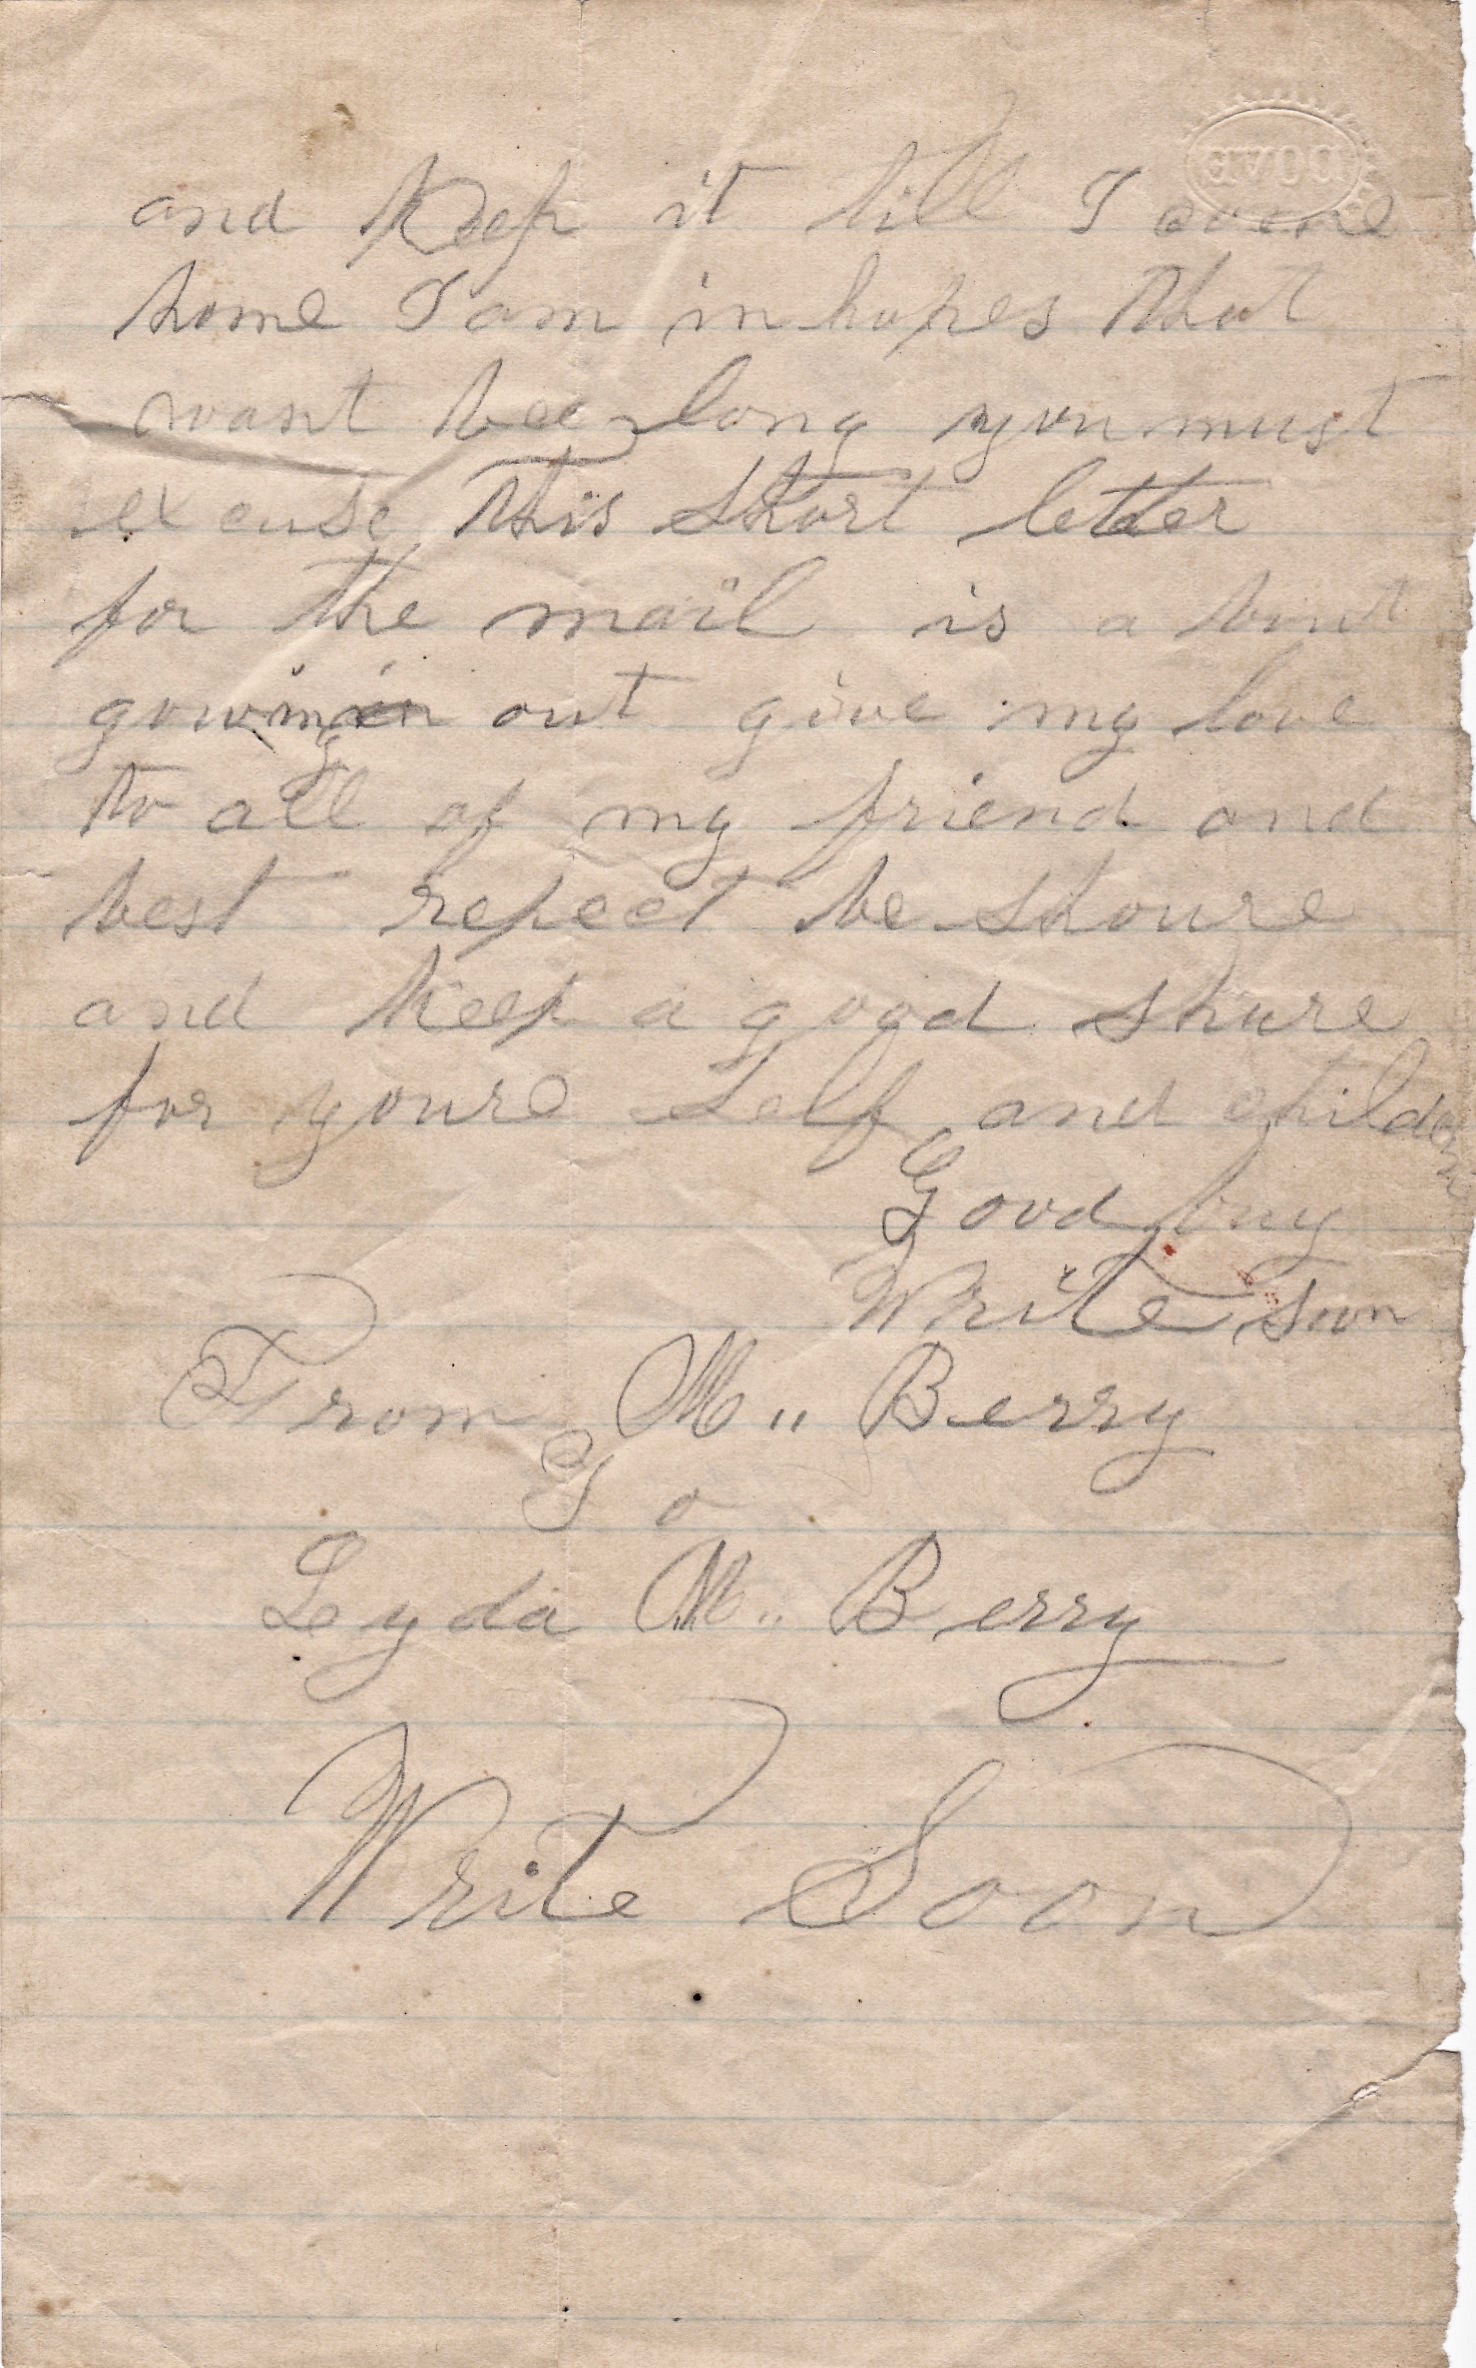 and Keep it till I come
home I am in hopes that
want bee long you must
excuse this Short letter
for the mail is a bout
gowing out give my love
to all of my friend and
best repect be Shoure
and keep a good Shure
for youre Self and childern
Good buy
Write Soon
From M" Berry
To
Lyda M" Berry
Write Soon